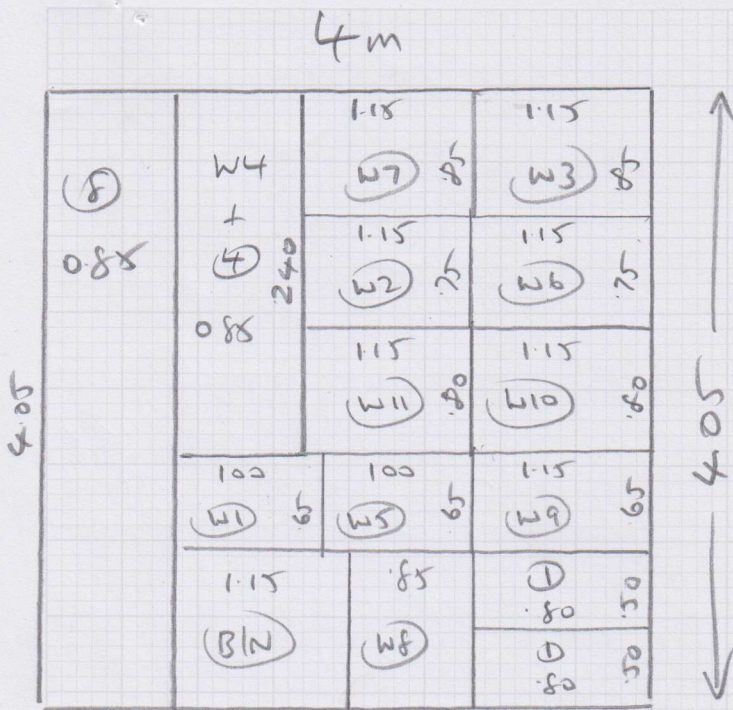 4m
8
0.85
4.05
W4
+
4
240
0.85
1.15
W7
.85
1.15
W3
.85
1.15
W2
.75
1.15
W6
.75
1.15
W11
.80
1.15
W10
.80
100
W1
.65
100
W5
.65
1.15
W9
.65
1.15
BIN
.85
W8
1
.80
.50
1
.80
.50
4.05